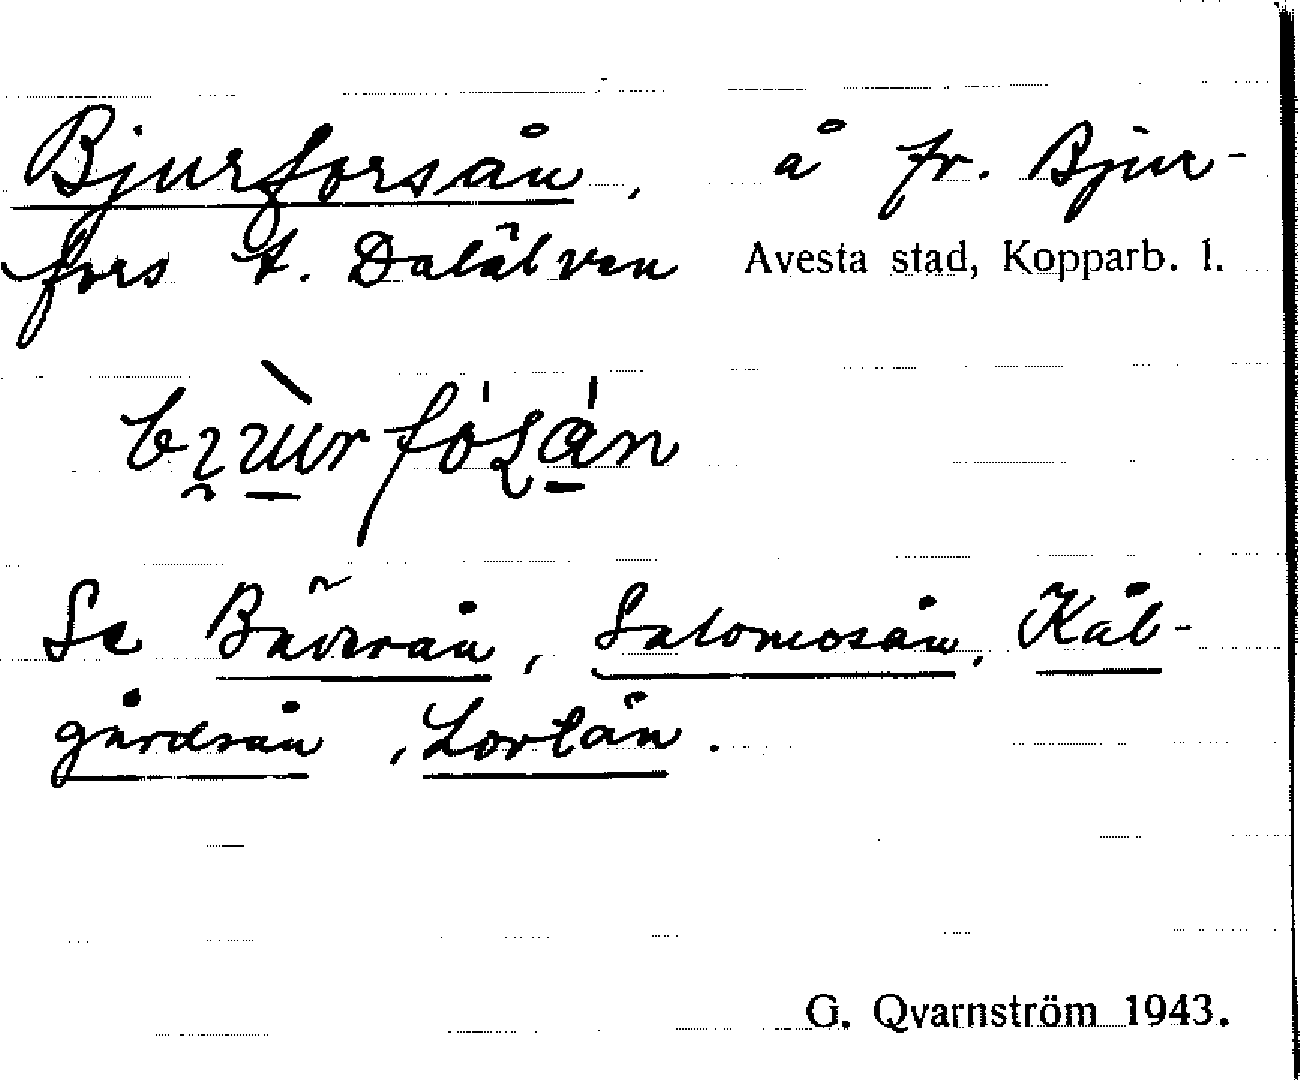 Bjurforsån, å fr. Bjur-
fors t. Dalälven Avesta stad, Kopparb. l.
Se Bäverån, Salomosån, Kål-
gårdsån, Lortån.
G. Qvarnström 1943.